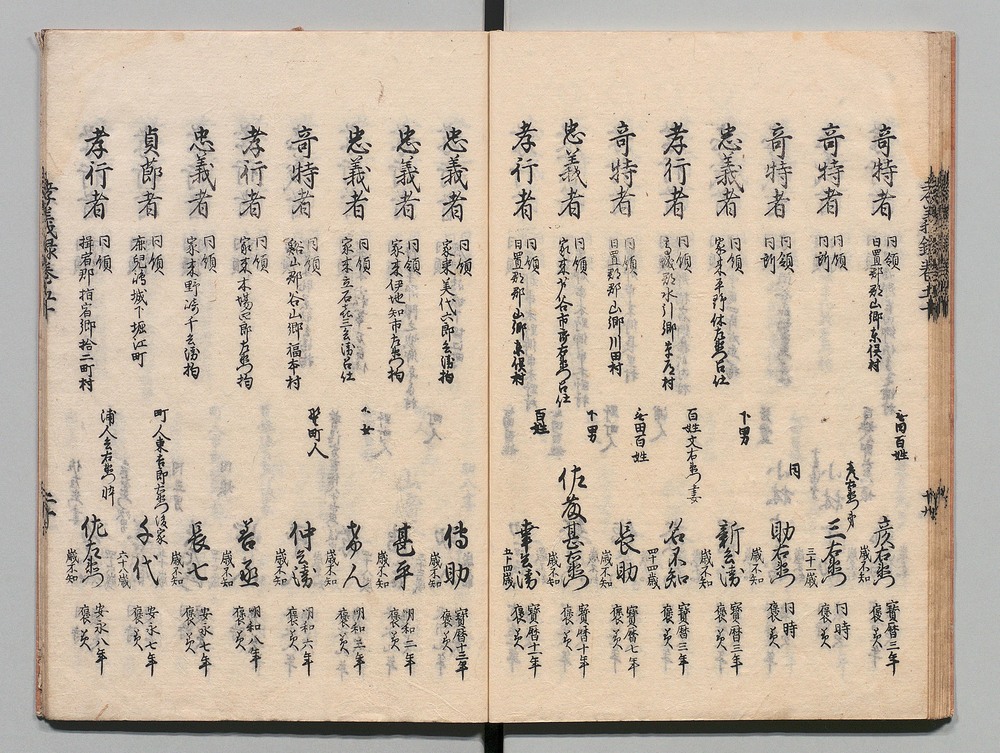 奇特者 同領 日置郡郡山郷東俣村 無田百姓 彦右衛門 歳不知 寶暦三年 褒美
奇特者 同領 同所 彦右衛門弟 三右衛門 三十二歳 同時 褒美
奇特者 同領 同所 同 助右衛門 歳不知 同時 褒美
忠義者 同領 家来平野休左衛門召仕 下男 新兵衛 歳不知 寶暦三年 褒美
孝行者 同領 高城郡水引郷草道村 百姓文右衛門妻 名不知 四十四歳 寶暦三年 褒美
奇特者 同領 日置郡郡山郷川田村 無田百姓 長助 歳不知 寶暦七年 褒美
忠義者 同領 家来 谷市郎右衛門召仕 下男 佐藤甚右衛門 歳不知 寶暦十年 褒美
孝行者 同領 日置郡郡山郷東俣村 百姓 幸兵衛 五十四歳 寶暦十一年 褒美
忠義者 同領 家来美代六郎兵衛拘 傳助 歳不知 寶暦十三年 褒美
忠義者 同領 家来伊地知市左衛門拘 甚平 歳不知 明和二年 褒美
忠義者 同領 家来立石喜三兵衛召仕 下女 歳不知 明和三年 褒美
奇特者 同領 谿山郡谷山郷福本村 野町人 仲兵衛 歳不知 明和六年 褒美
孝行者 同領 家来木場四郎左衛門拘 善丞 歳不知 明和八年 褒美
忠義者 同領 家来野崎千兵衛拘 長七 歳不知 安永七年 褒美
貞節者 同領 鹿児嶋城下堀江町 町人東吉郎左衛門後家 千代 六十八歳 安永七年 褒美
孝行者 同領 揖宿郡指宿郷拾二町村 浦人善右衛門忰 佐左衛門 歳不知 安永八年 褒美
孝義録巻五十